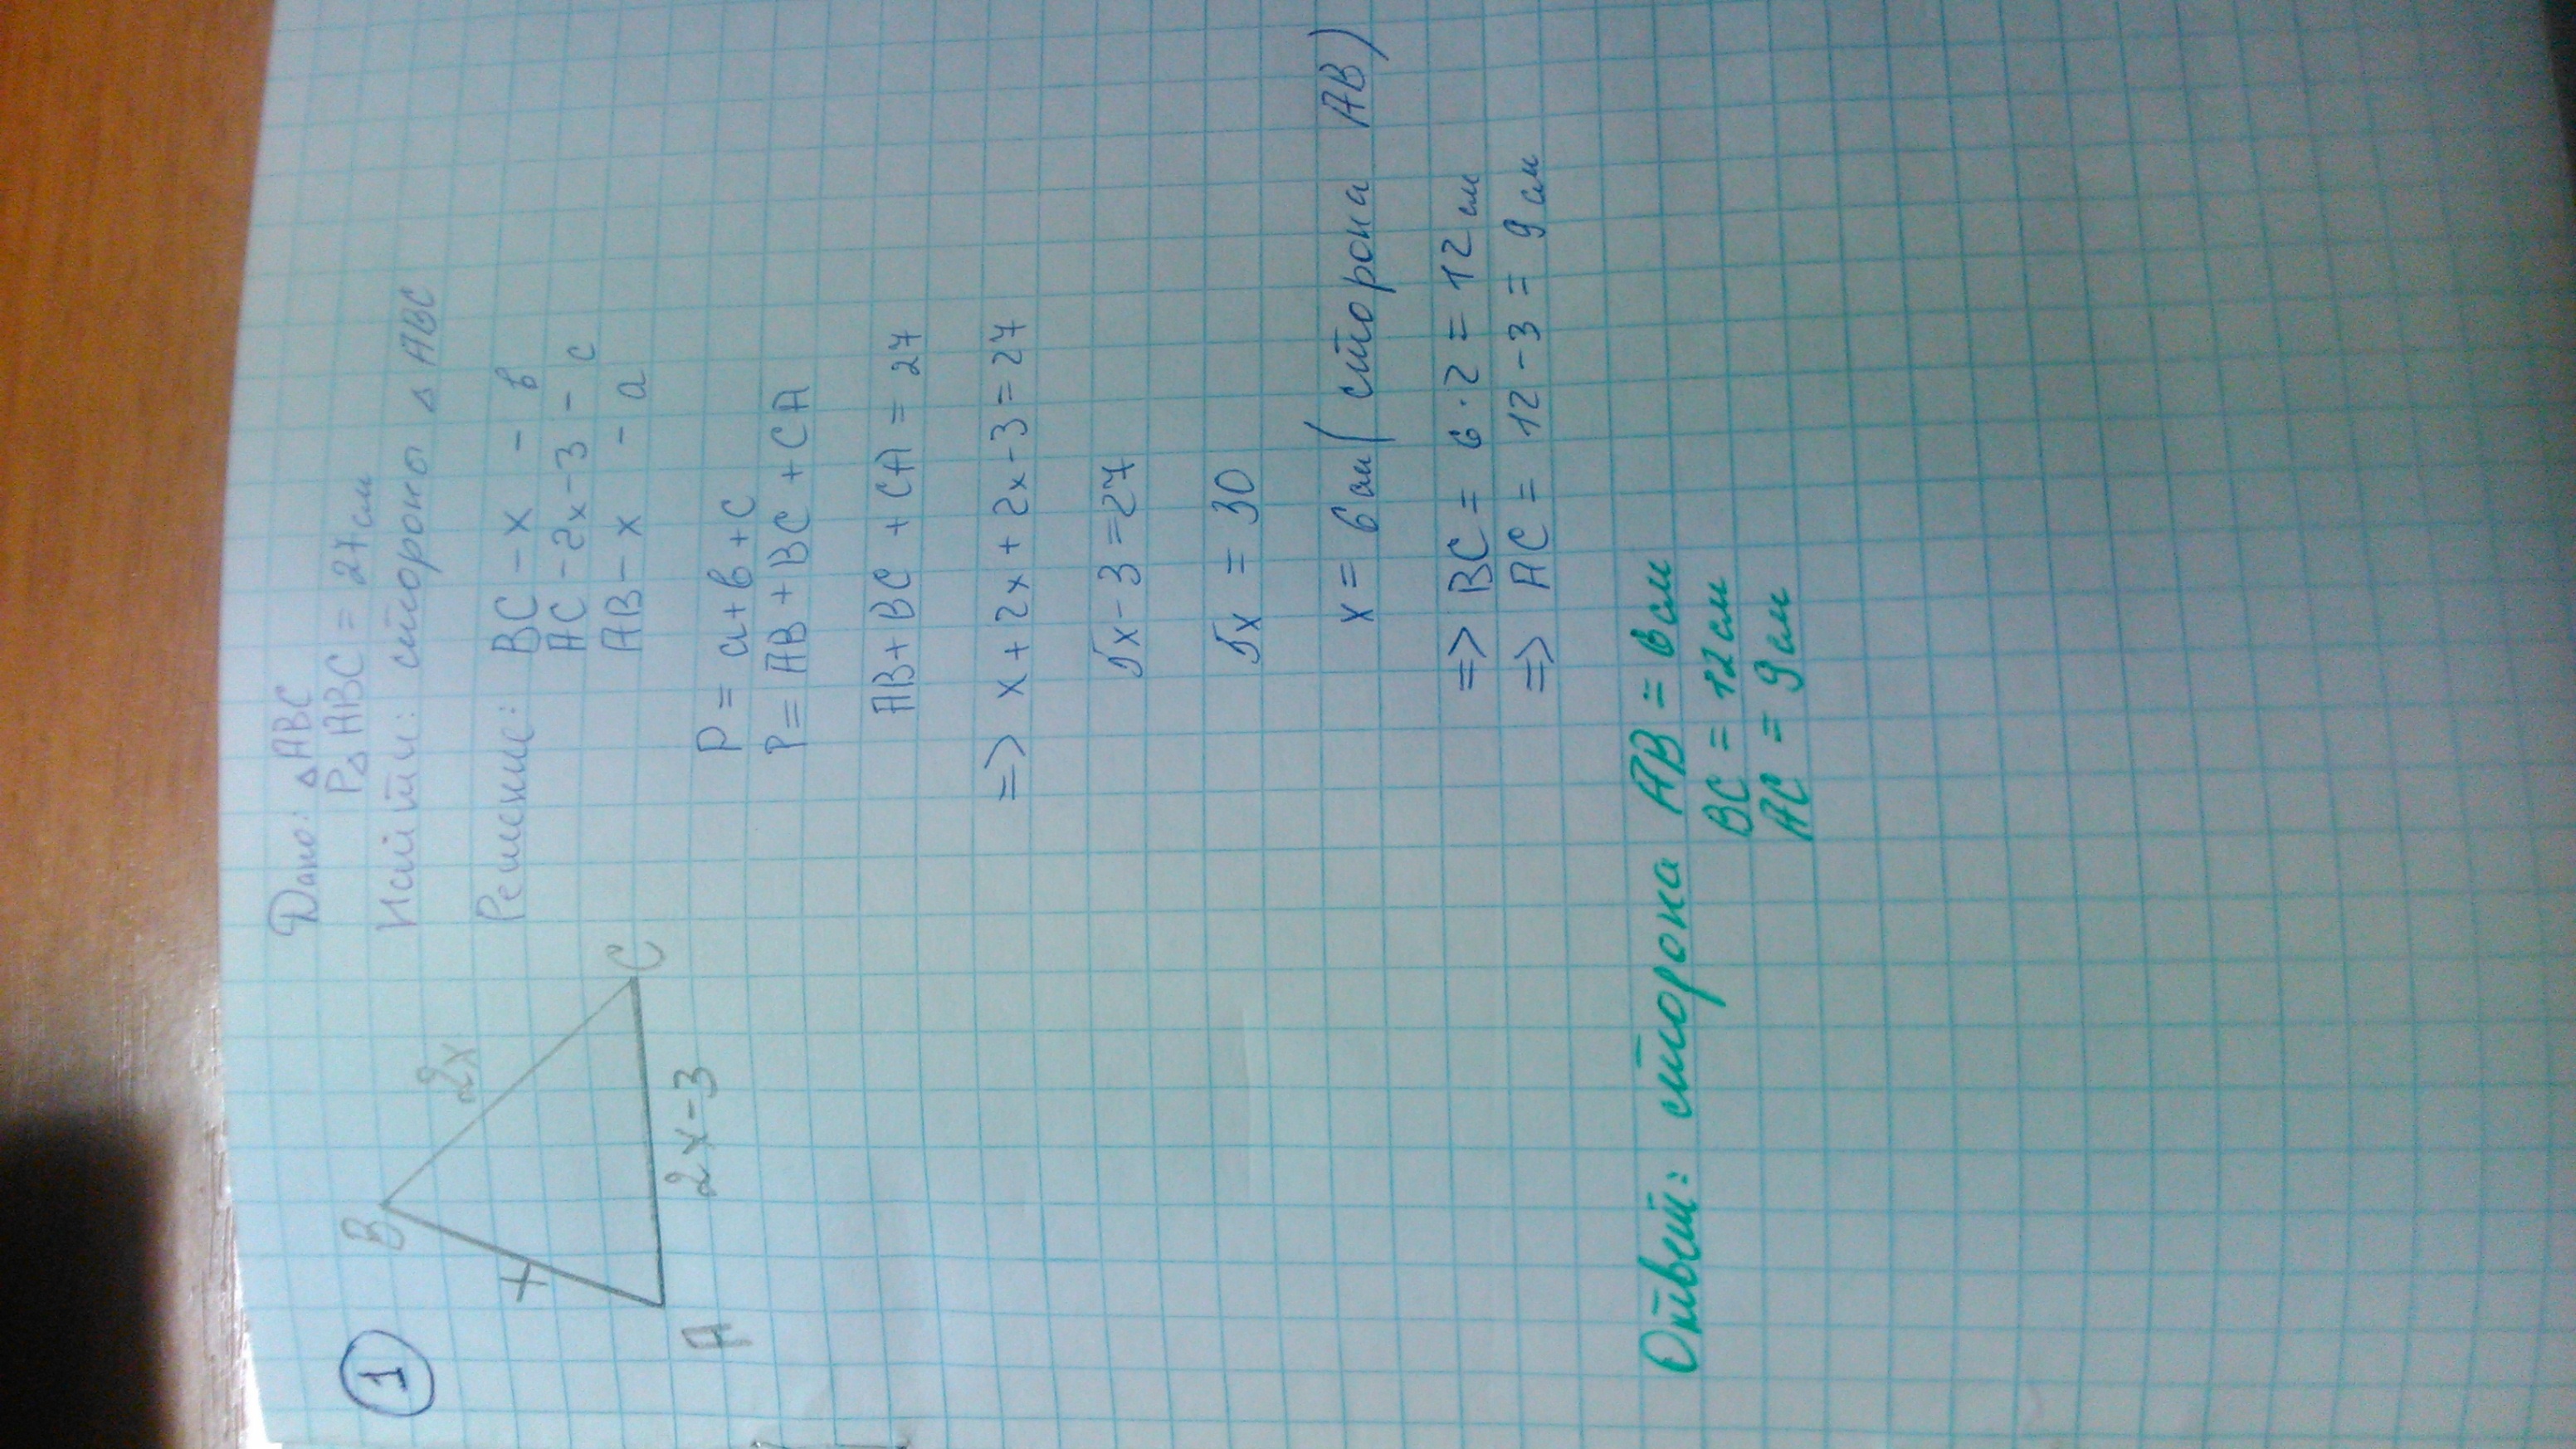 1
B
x
2x
A
C
2x-3
Дано: △ABC
P△ABC = 27см
Найти: стороно △ ABC
Решение: BC - x - в
AC - 2x-3 - c
AB - x - a
P = a+в+c
P = AB+BC+CA
AB+BC+CA = 27
=> x+2x+2x-3=27
5x-3=27
5x = 30
x = 6см (сторона AB)
=> BC = 6·2 = 12 см
=> AC = 12-3 = 9 см
Ответ: сторона AB = 6см
BC = 12см
AC = 9см